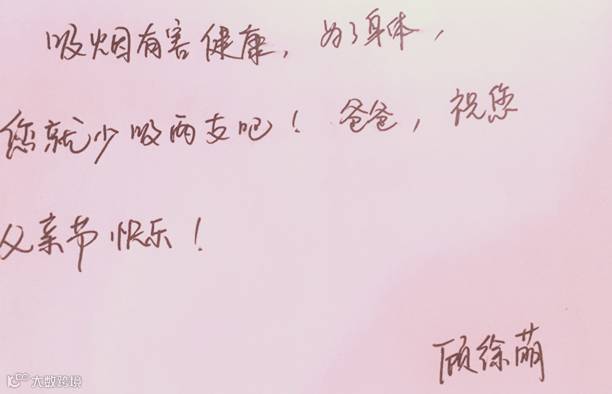 吸烟有害健康，为了身体，
您就少吸两支吧！爸爸，祝您
父亲节快乐！
顾徐萌
大数跨境